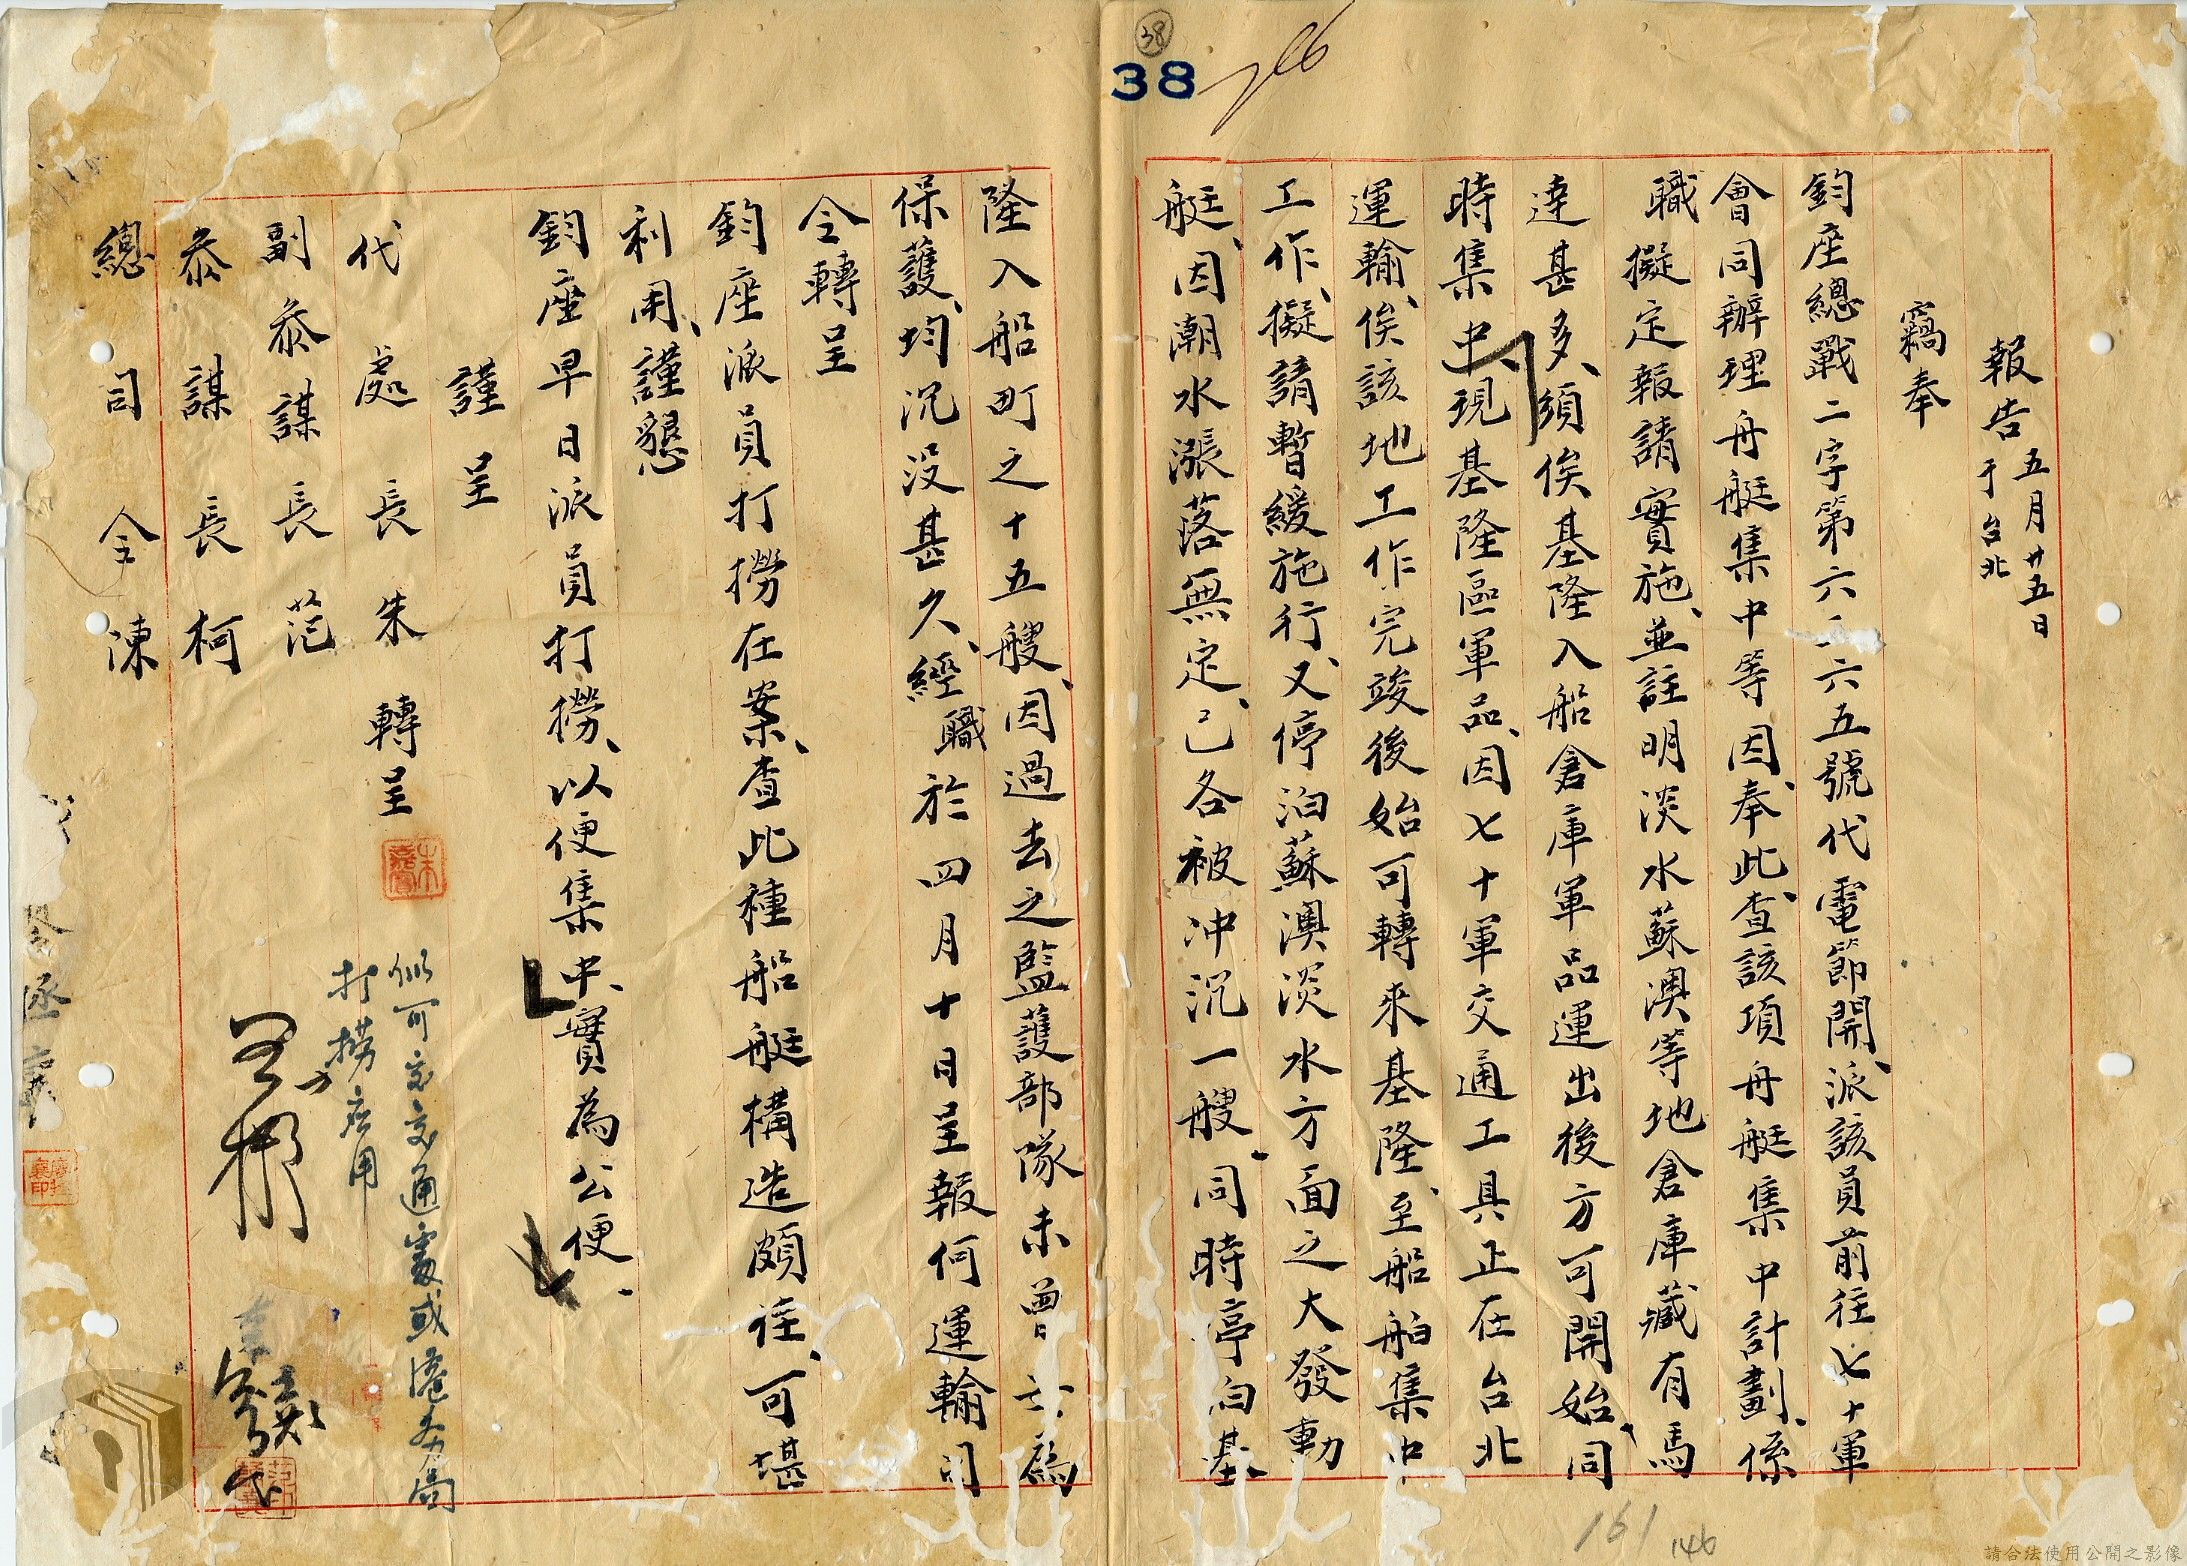 38
38
報告 五月廿五日
于台北
竊奉
鈞座總戰二字第六 六五號代電節開、派該員前往七十軍
會同辦理舟艇集中等因、奉此、查該項舟艇集中計劃、係
職擬定報請實施、並註明淡水蘇澳等地倉庫藏有馬
達甚多、須俟基隆入船倉庫軍品運出後方可開始、同
時集中、現基隆區軍品、因七十軍交通工具正在台北
運輸、俟該地工作完竣後始可轉來基隆、至船舶集中
工作、擬請暫緩施行、又停泊蘇澳淡水方面之大發動
艇、因潮水漲落無定、已各被冲沉一艘、同時停泊基
隆入船町之十五艘、因過去之監護部隊未曾 為
保護、均沉没甚久、經職於四月十日呈報何運輸司
令轉呈
鈞座派員打撈在案、查此種船艇構造頗佳、可堪
利用、謹懇
鈞座早日派員打撈、以便集中、實為公便.
謹呈
代處長朱 轉呈
副參謀長范
參謀長柯
總司令陳
似可交交通處或港务局
打撈应用
161
146
請合法使用公開之影像